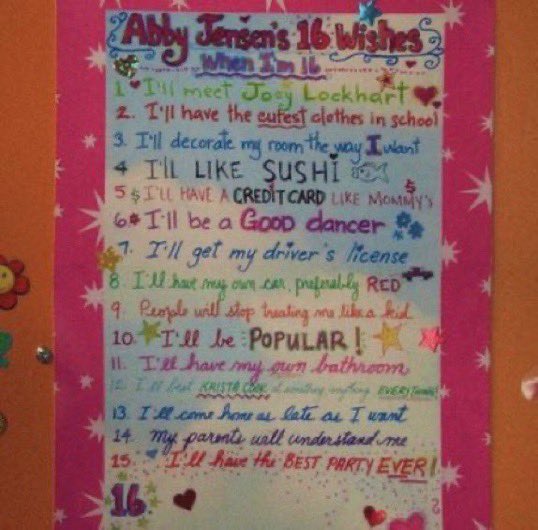 Abby Jensen's 16 Wishes
When I'm 16
1. I'll meet Joey Lockhart
2. I'll have the cutest clothes in school
3. I'll decorate my room the way I want
4 I'll LIKE SUSHi
5 $ I'LL HAVE A CREDIT CARD LIKE MOMMY'S $
6. I'll be a GOOD dancer
7. I'll get my driver's license
8. I'll have my own car, preferably RED
9. People will stop treating me like a kid
10. I'll be POPULAR!
11. I'll have my own bathroom
12. I'll beat KRISTA COOK at something, anything, EVERYTHING!
13. I'll come home as late as I want
14. My parents will understand me
15. I'll have the BEST PARTY EVER!
16